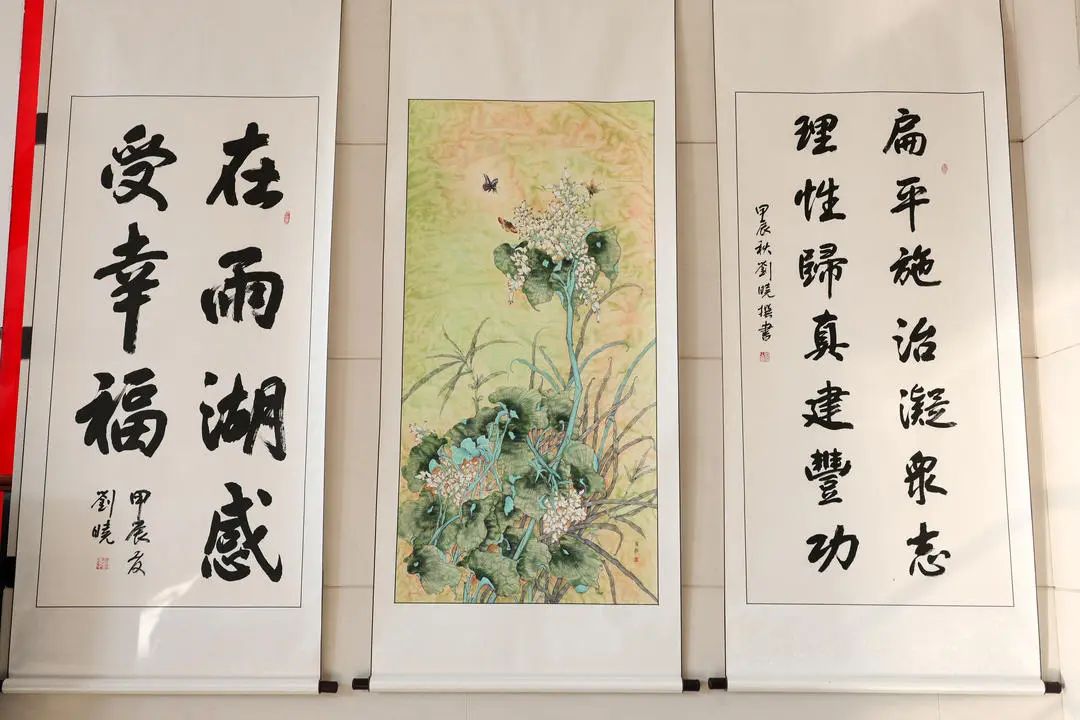 在雨湖感
受幸福
甲辰夏
劉曉
扁平施治凝眾志
理性歸真建豐功
甲辰秋劉曉撰書